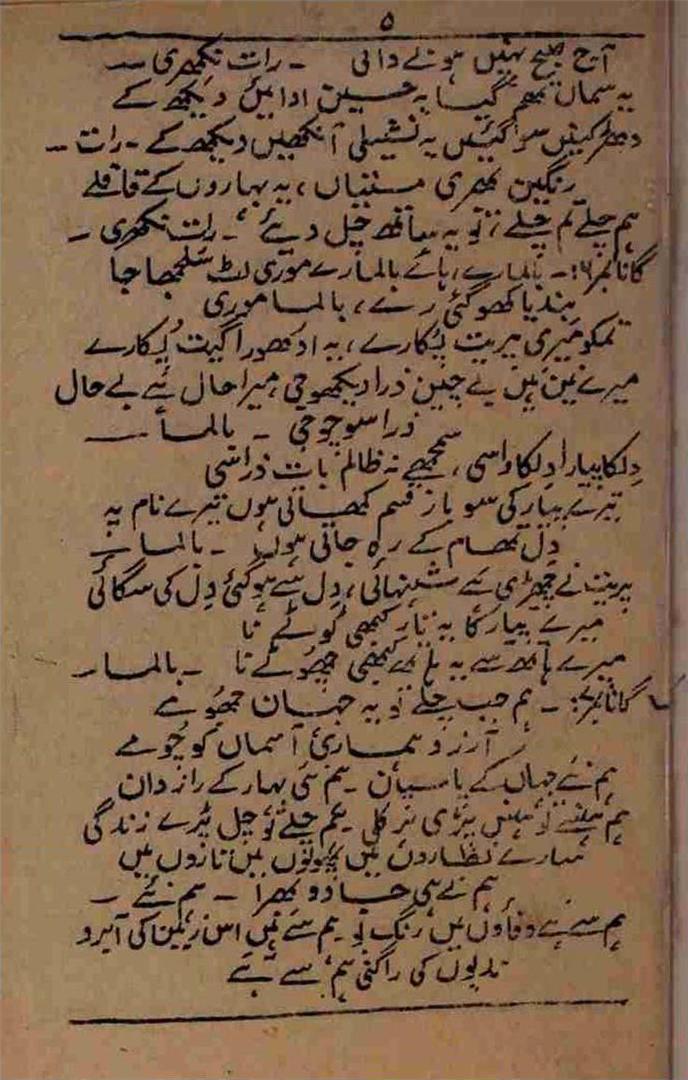 ۵
آج صبح نہیں ہونے والی ۔ رات نکھری ۔۔
یہ سماں تھم گیا یہ حسین ادائیں دیکھ کے
دھڑکنیں سو گئیں یہ نشیلی آنکھیں دیکھ کے ۔ رات ۔۔
رنگین بھری مستیاں، یہ بہاروں کے قافلے
ہم چلے تم چلے، تو یہ ساتھ چل دیئے ۔ رات نکھری ۔
گانا نمبر ۶: ۔ بالمارے، ہائے بالمارے موری لٹ سلجھا جا
بندیا کھو گئی رے، بالما موری
تمکو میری پریت پکارے، یہ ادھورا گیت پکارے
میرے نین ہیں بے چین ذرا دیکھو جی، میرا حال ہے بے حال
ذرا سوچو جی ۔ بالما ۔۔
دلکا پیارا دلکا واسی، سمجھے نہ ظالم بات ذراسی
تیرے پیار کی سو بار قسم کھاتی ہوں تیرے نام پہ
دل تھام کے رہ جاتی ہوں ۔ بالما ۔۔
پریت نے چھیڑی ہے شہنائی، دل سے ہو گئی دل کی سگائی
میرے پیار کا یہ تار کبھی ٹوٹے نا
میرے ہاتھ سے یہ ہاتھ کبھی چھوٹے نا ۔ بالما ۔۔
گانا نمبر ۷: ۔ ہم جب چلے تو یہ جہان جھومے
آرزو ہماری آسماں کو چومے
ہم نئے جہاں کے پاسبان ۔ ہم نئی بہار کے رازدان
ہم ہنسے تو ہنس پڑی ہر کلی ۔ ہم چلے تو چل پڑے زندگی
سارے نظاروں میں پھولوں میں تاروں میں
ہم نے ہی جادو بھرا ۔ ہم نئے ۔
ہم سے ہے وفاؤں میں رنگ لو ہم سے ہیں اس زمین کی آبرو
ندیوں کی راگنی ہم سے ہے